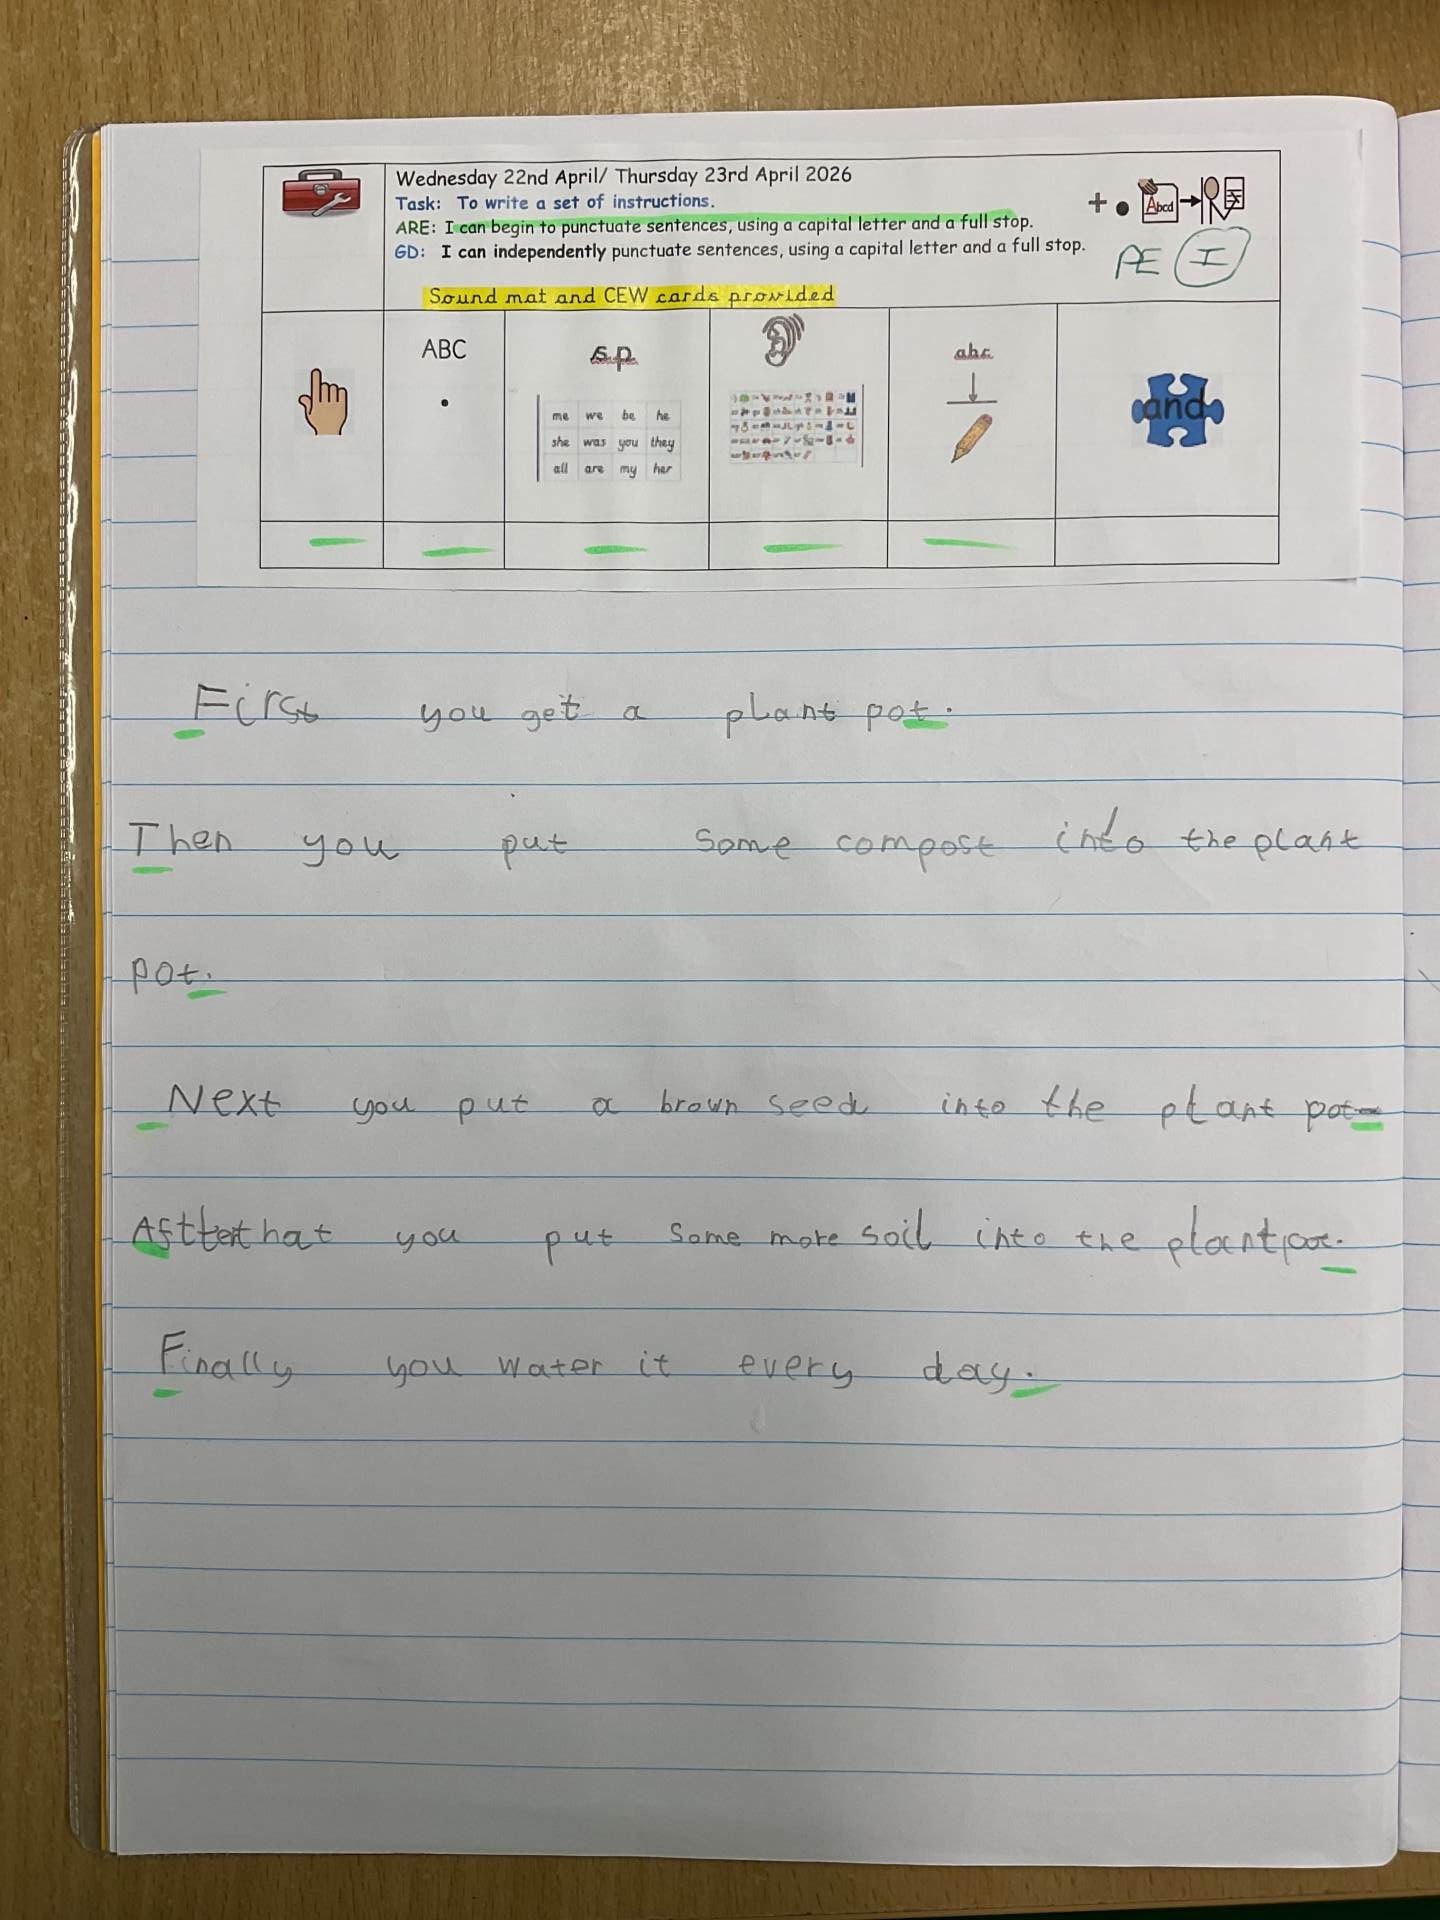 Wednesday 22nd April/ Thursday 23rd April 2026
Task: To write a set of instructions.
ARE: I can begin to punctuate sentences, using a capital letter and a full stop.
GD: I can independently punctuate sentences, using a capital letter and a full stop.
+ • Abcd
PE I
Sound mat and CEW cards provided
ABC
.
s.p.
me we be he
she was you they
all are my her
abc
and
First you get a plant pot.
Then you put some compost into the plant
pot.
Next you put a brown seed into the plant pot
After that you put some more soil into the plant pot.
Finally you water it every day.